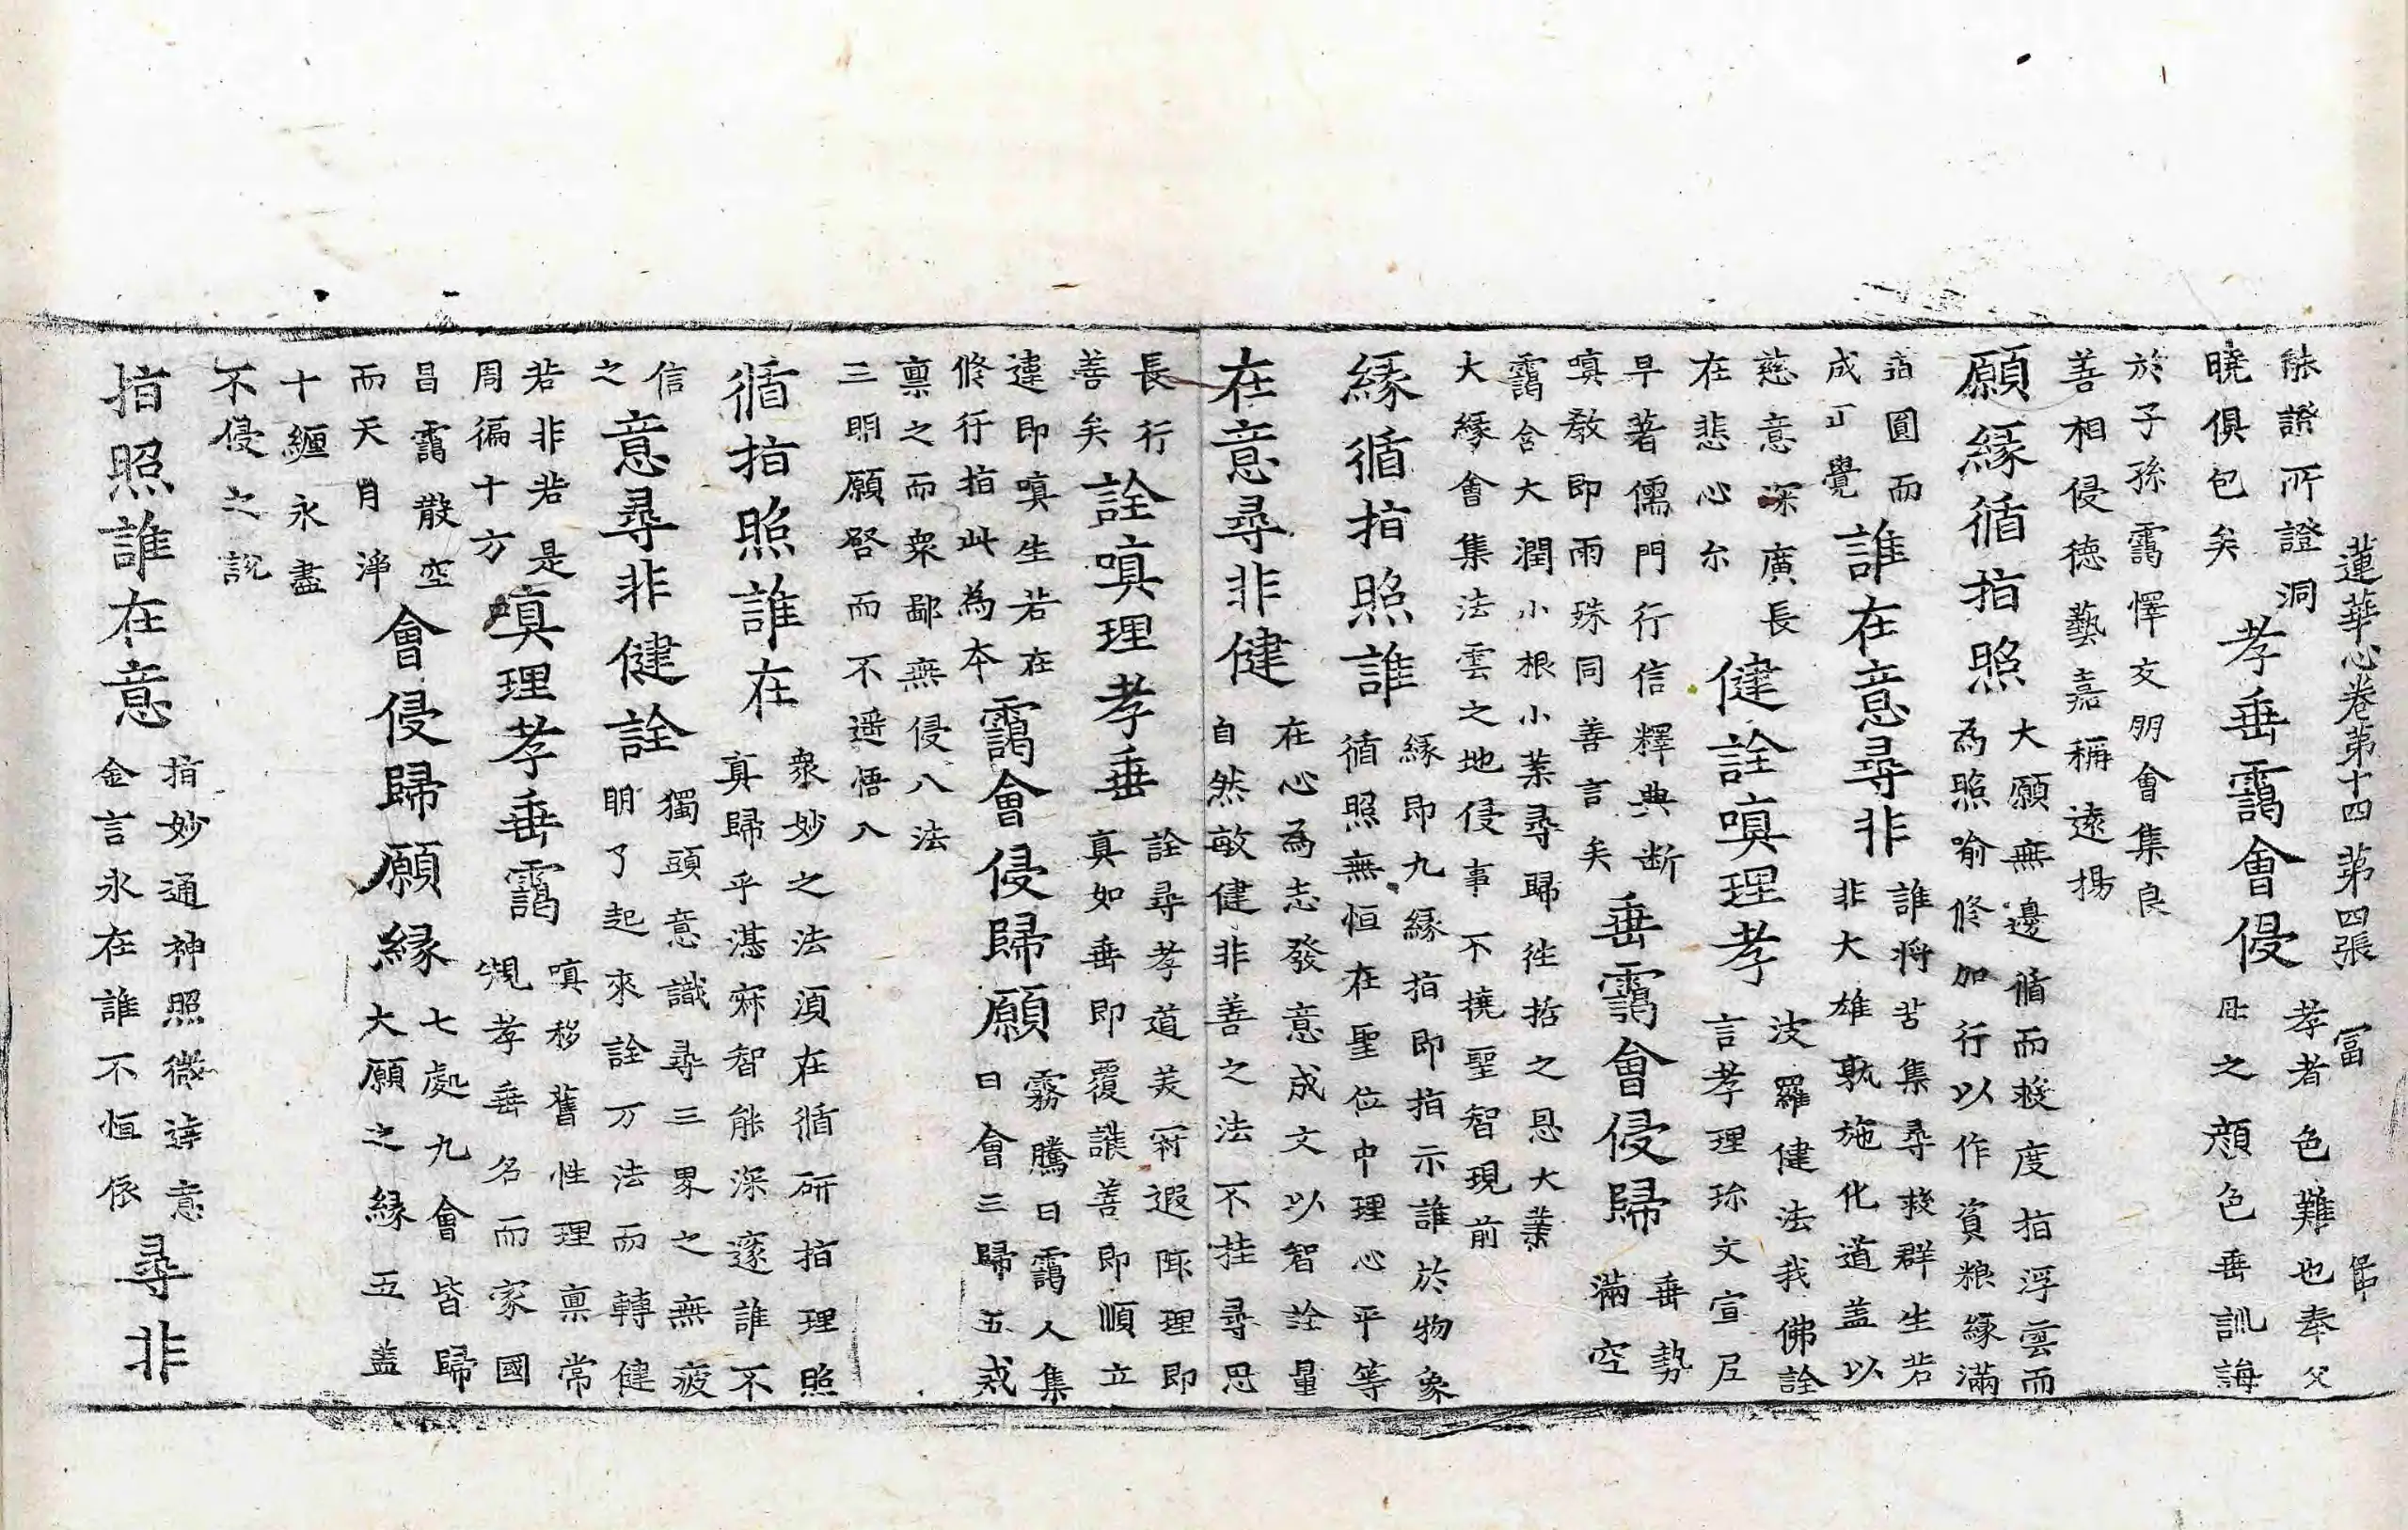 蓮華心卷第十四 第四張 冨
能證所證洞
曉俱包矣
孝垂靄會侵
孝者色難也奉父
母之顔色垂訓誨
於子孫靄懌交朋會集良
善相侵德藝嘉稱遠揚
願緣循指照
大願無邊循而救度指浮雲而
為照喻修加行以作資粮緣滿
指圓而
成正覺
誰在意尋非
誰將苦集尋救群生若
非大雄孰施化道盖以
慈意深廣長
在悲心尒
健詮嗔理孝
波羅健法我佛詮
言孝理珎文宣尼
早著儒門行信釋典断
嗔教即雨殊同善言矣
垂靄會侵歸
垂勢
滿空
靄含大潤小根小葉尋歸徃括之恳大葉
大緣會集法雲之地侵事不撓聖智現前
緣循指照誰
緣即九緣指即指示誰於物象
循照無恒在聖位中理心平等
在意尋非健
在心為志發意成文以智詮量
自然敏健非善之法不挂尋思
長行
善矣
詮嗔理孝垂
詮尋孝道美冠遐陬理即
真如垂即覆謙善即順立
違即嗔生若在
修行指此為本
靄會侵歸願
霧騰日靄人集
日會三歸五戒
禀之而衆鄙無侵八法
三明願啓而不遥悟入
循指照誰在
衆妙之法湏在循研指理照
真歸乎湛寂智能深邃誰不
信
之
意尋非健詮
獨頭意識尋三界之無疲
明了起來詮万法而轉健
若非若是
周徧十方
嗔理孝垂靄
嗔移舊性理禀常
䂓孝垂名而家國
昌靄散空
而天月淨
會侵歸願緣
七處九會皆歸
大願之緣五盖
十纏永盡
不侵之說
指照誰在意
指妙通神照微逹意
金言永在誰不恒依
尋非